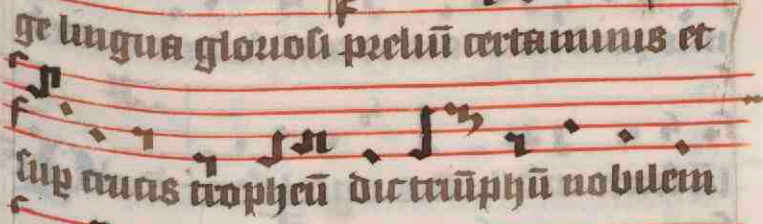 ge lingua gloriosi preliū certaminis et
sup crucis tropheū dic triūphū nobilem